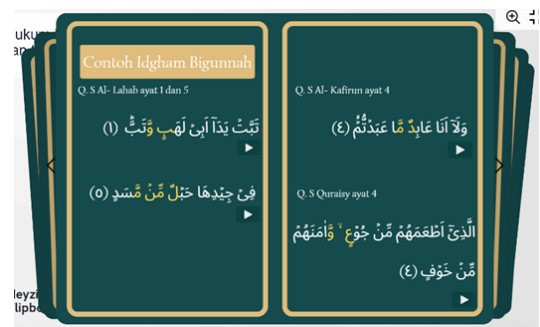 Contoh Idgham Bigunnah
Q. S Al- Lahab ayat 1 dan 5
تَبَّتْ يَدَآ اَبِيْ لَهَبٍ وَّتَبَّۗ (١)
فِيْ جِيْدِهَا حَبْلٌ مِّنْ مَّسَدٍ (٥)
Q. S Al- Kafirun ayat 4
وَلَآ اَنَا۠ عَابِدٌ مَّا عَبَدْتُّمْۙ (٤)
Q. S Quraisy ayat 4
الَّذِيْٓ اَطْعَمَهُمْ مِّنْ جُوْعٍ ەۙ وَّاٰمَنَهُمْ
مِّنْ خَوْفٍ (٤)